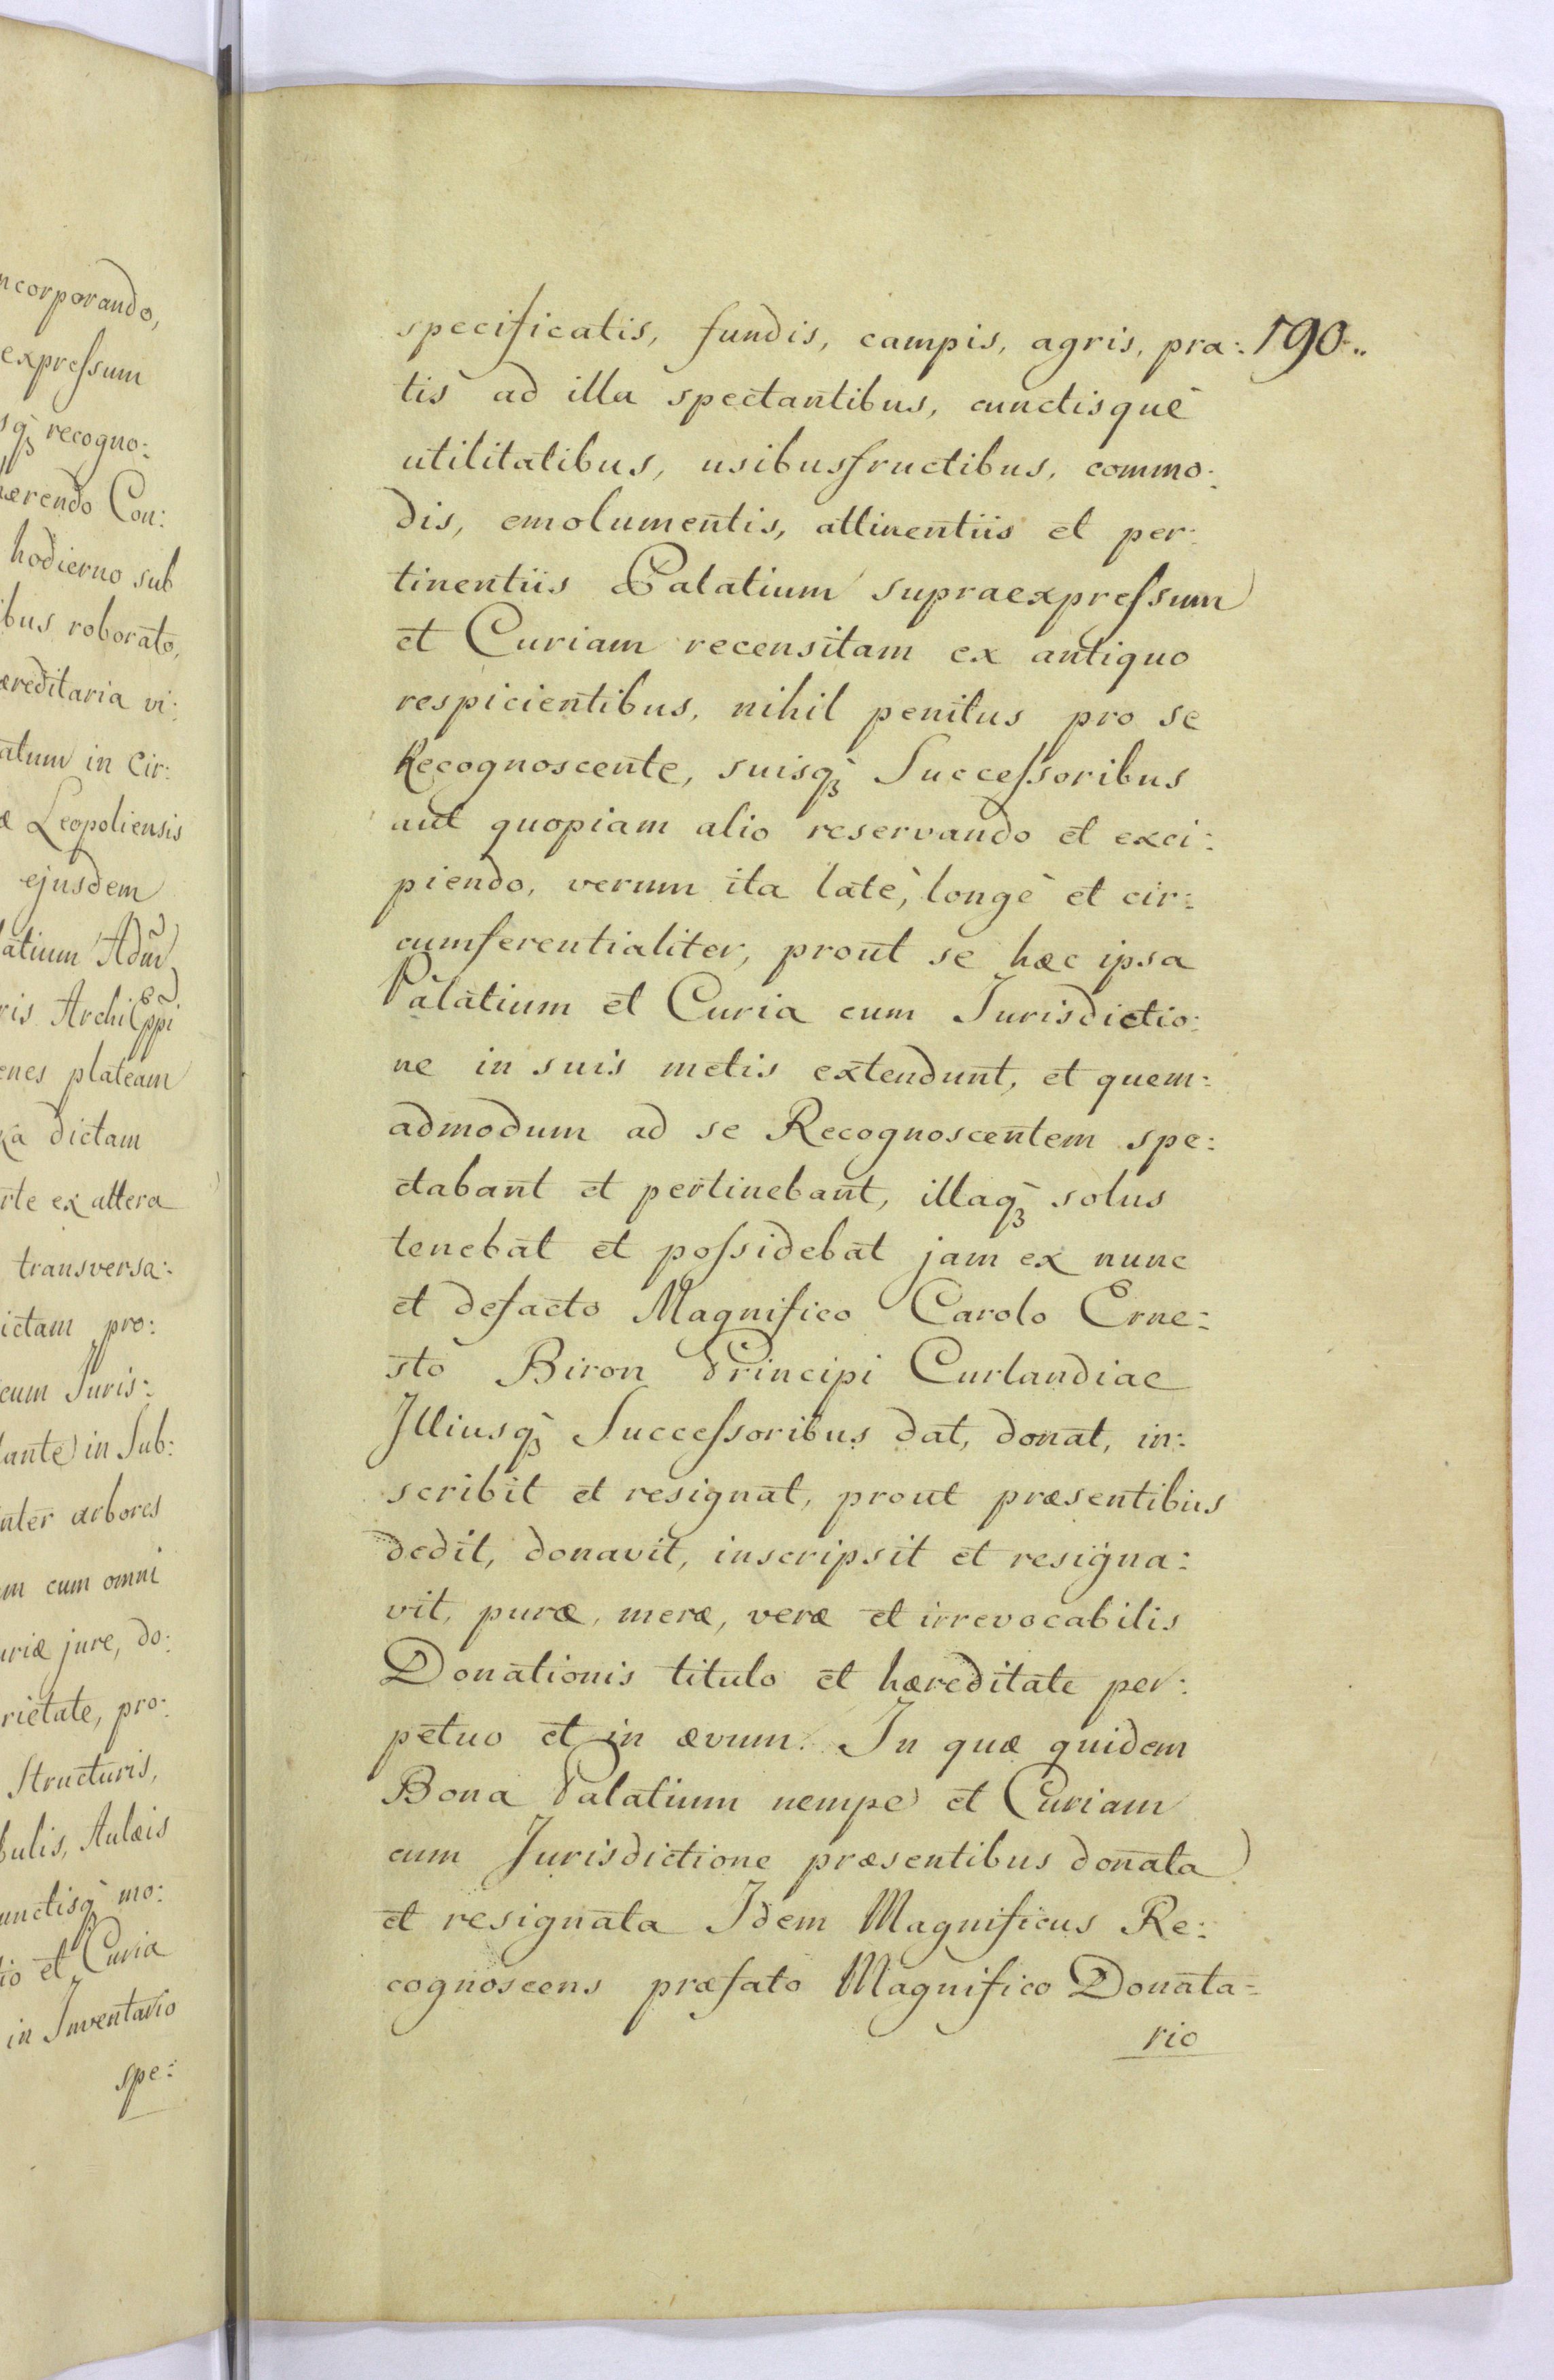 ncorporando,
expressum
sq̀ꝫ recogno:
hærendo Con:
hodierno sub
ibus roborato,
æreditaria vi:
atum in Cir:
æ Leopoliensis
ejusdem
latium Adm̃
ris Archi
enes plateam
ka dictam
rte ex altera
transversa:
ictam pro:
cum Juris:
lante in Sub:
nter arbores
m cum omni
uriæ jure, do:
rietate, pro:
Structuris,
bulis, Aulæis
unctisq̀ mo:
io et Curia
in Inventario
spe:
specificatis, fundis, campis, agris, pra: 190..
tis ad illa spectantibus, cunctisquè
utilitatibus, usibusfructibus, commo:
dis, emolumentis, attinentiis et per:
tinentiis Palatium supraexpressum
et Curiam recensitam ex antiquo
respicientibus, nihil penitus pro se
Recognoscente, suisq̀ꝫ Successoribus
aut quopiam alio reservando et exci:
piendo, verum ita latè, longè et cir:
cumferentialiter, prout se hæc ipsa
Palatium et Curia cum Jurisdictio:
ne in suis metis extendunt, et quem:
admodum ad se Recognoscentem spe:
ctabant et pertinebant, illaq̀ꝫ solus
tenebat et possidebat jam ex nunc
et defacto Magnifico Carolo Erne:
sto Biron Principi Curlandiae
Illiusq̀ꝫ Successoribus dat, donat, in:
scribit et resignat, prout præsentibus
dedit, donavit, inscripsit et resigna:
vit, puræ, meræ, veræ et irrevocabilis
Donationis titulo et hæreditate per:
petuo et in ævum. In quæ quidem
Bona Palatium nempe et Curiam
cum Jurisdictione præsentibus donata
et resignata Idem Magnificus Re:
cognoscens præfato Magnifico Donata=
rio